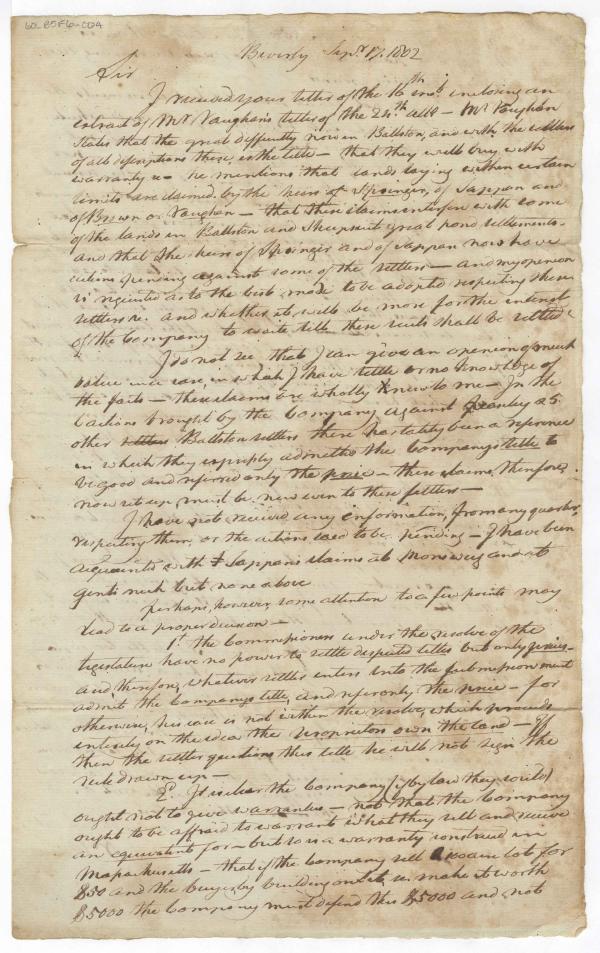 60_B5F6_004
Beverly Sepr. 17. 1802
Sir
I received your letter of the 16th inst. inclosing an
extract of Mr Vaughan's letter of the 24th ulto — Mr Vaughan
states that the great difficulty now in Ballston, and with the settlers
of all descriptions there, is the title — that they will buy with
warranty &c — he mentions that lands laying within certain
limits are claimed by the heirs of Springer, of Tappan and
of Brown or Vaughan — that these claims interfere with some
of the lands in Ballston and Sheepscut great pond settlements —
and that the heirs of Springer and of Tappan now have
actions pending against some of the settlers — and my opinion
is requested as to the best mode to be adopted respecting these
settlers &c. and whether it will be more for the interest
of the Company to waite till these suits shall be settled
I do not see that I can give an opinion of much
value in a case, in which I have little or no knowledge of
the facts — these claims are wholly new to me — In the
actions brought by the Company against & 5
other Ballston settlers there has lately been a reference
in which they expressly admitted the Company's title to
be good and referred only the price — these claims, therefore,
now set up, must be new even to these settlers —
I have not received any information, from any quarter,
respecting them, or the actions said to be pending — I have been
acquainted with Tappan's claims at and at
neck but none above
perhaps, however, some attention to a few points may
lead to a proper decision —
1st. the Commissioners under the resolve of the
legislature have no power to settle disputed titles but only prices —
and therefore, whatever settler enters into the submission must
admit the Companys title, and refer only the price — for
otherwise, his case is not within the resolve, which proceeds
entirely on the idea the proprietors own the land — If
then the settler questions this title he will not sign the
rule drawn up —
2d. It is clear the Company (if by law they could)
ought not to give warranties — not that the Company
ought to be affraid to warrant what they sell and receive
an equivalent for — but so is a warranty construed in
Massachusetts — that if the Company sell a 100 acre lot for
$50 and the buyer by building on it, &c. make it worth
$5000 the Company must defend this $5000 and not